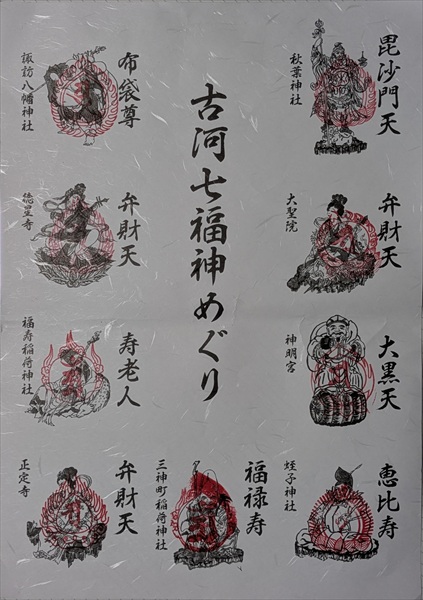 毘沙門天
秋葉神社
弁財天
大聖院
大黒天
神明宮
恵比寿
蛭子神社
古河七福神めぐり
福禄寿
三神町稲荷神社
布袋尊
諏訪八幡神社
弁財天
徳星寺
寿老人
福寿稲荷神社
弁財天
正定寺